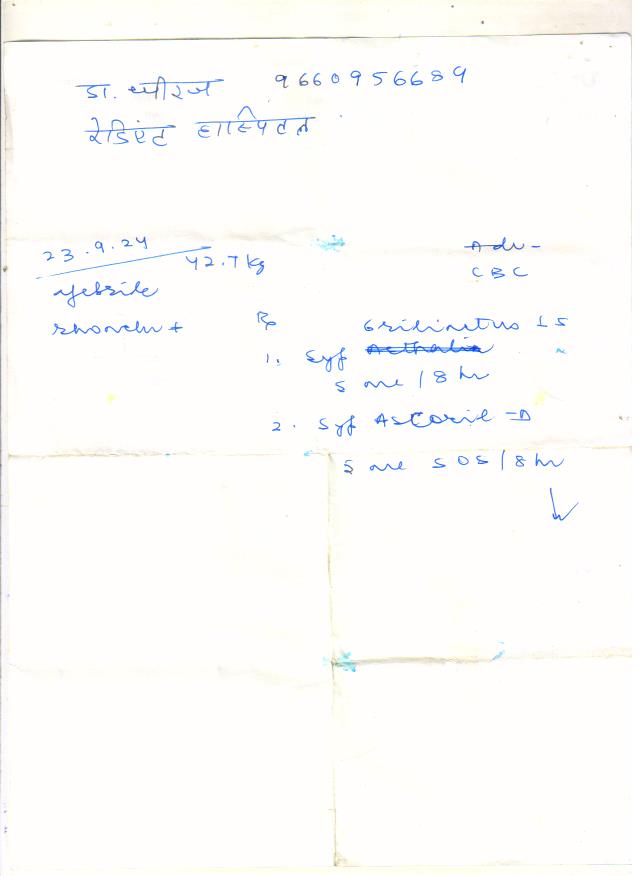 डा. धीरज 9660956689
रेडिएंट हास्पिटल
23.9.24
42.7 kg
Adv -
CBC
febrile
rhonchi +
Rx
Grilinctus LS
1. Syp
5 ml / 8 hr
2. Syp Ascoril - D
5 ml SOS / 8 hr